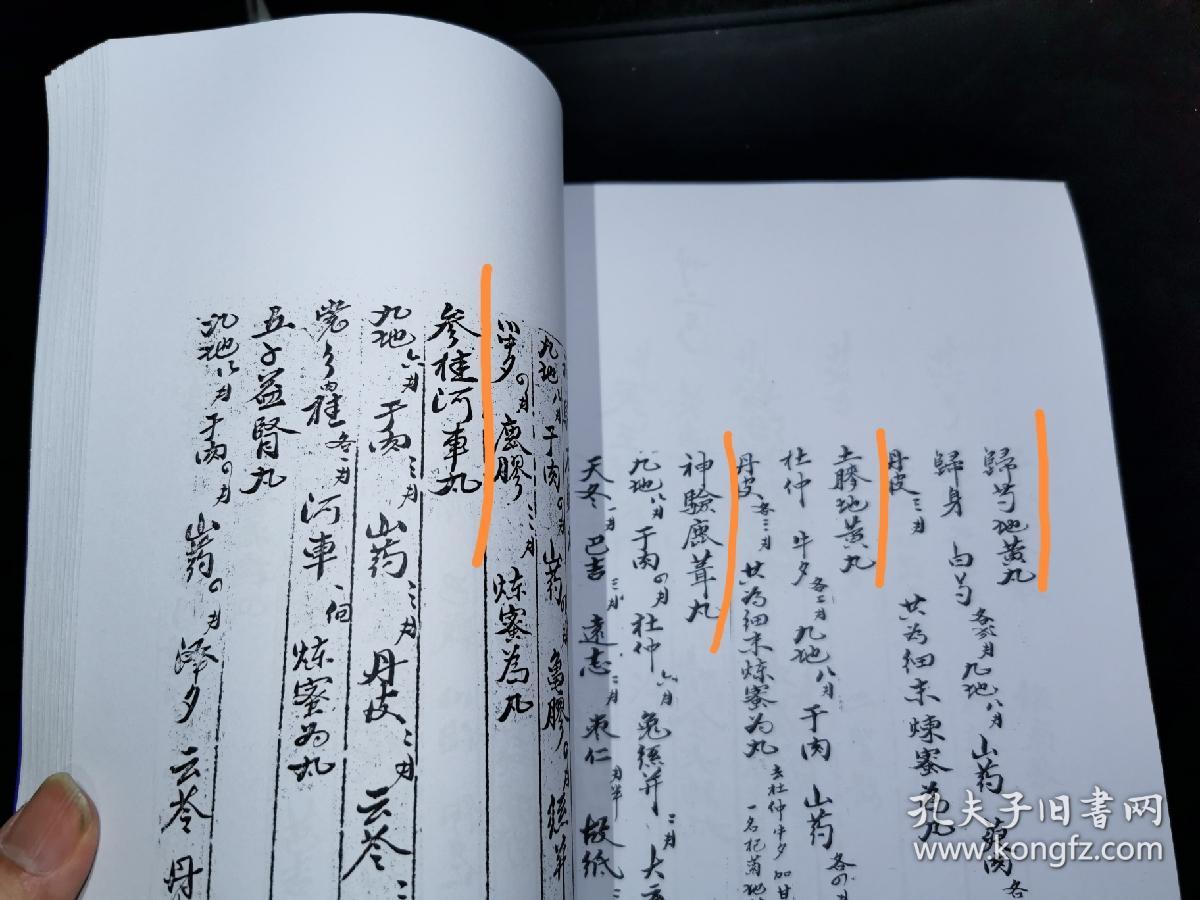 歸芍地黄丸
歸身 白芍 各 月 九地 八月 山药 萸肉 各
丹皮 三月 共為細末煉蜜為丸
土膠地黄丸
杜仲 牛夕 各二月 九地 八月 于肉 山药 各四月
丹皮 各三月 共為細末煉蜜為丸 去杜仲牛夕加甘
一名杞菊地
神驗鹿茸丸
九地 八月 于肉 四月 杜仲 六月 兔絲並 二月 大
天冬 一月 巴吉 三月 遠志 二月 枣仁 月半 故纸 三
九地 八月 于肉 四月 山药 四月 龜膠 四月 絲並
川牛夕 四月 鹿膠 三月 炼蜜為丸
参桂河車丸
九地 六月 于肉 三月 山药 三月 丹皮 三月 云苓 三
党参 肉桂 各一月 河車 一個 炼蜜为丸
五子益腎丸
九地 八月 于肉 四月 山药 四月 夕 云苓 丹
孔夫子旧书网
www.kongfz.com